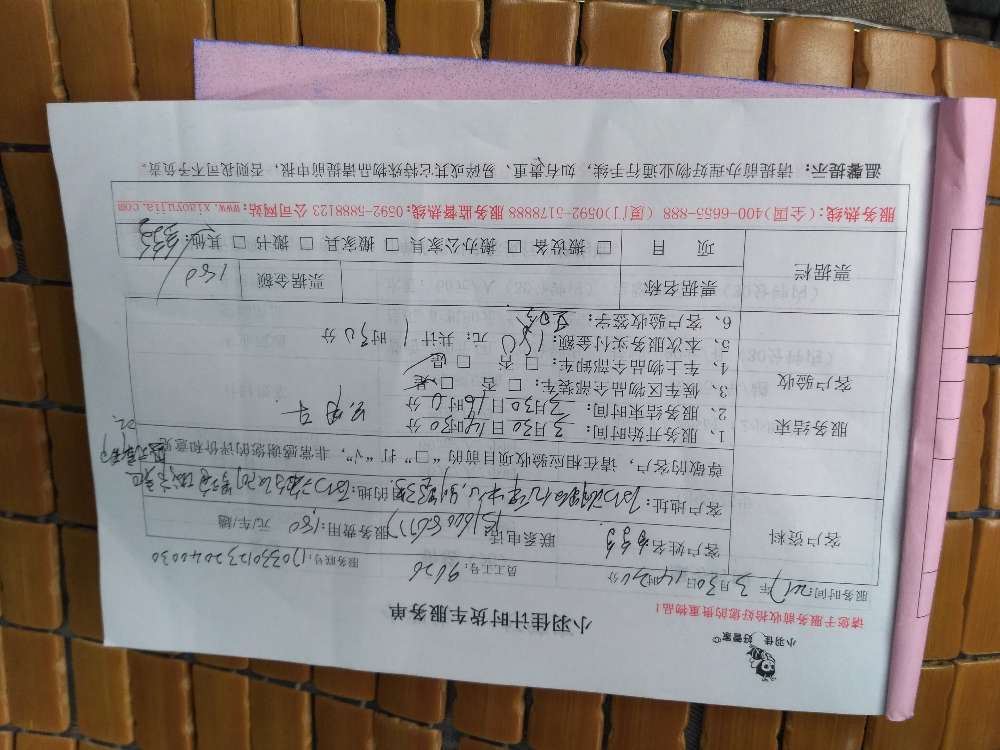 小羽佳 好管家
小羽佳计时货车服务单
请您于服务前收拾好您的贵重物品！
服务时间：2017年3月30日14时30分 员工工号：9626 服务联号：
客户资料
客户姓名 联系电话 服务费用：180 元/车/趟
客户地址： 目的地：
尊敬的客户，请在相应验收项目前的“□”打“√”，非常感谢您的评价和意见
服务结束
客户验收
1、服务开始时间：3月30日14时30分
2、服务结束时间：3月30日16时0分
3、候车区物品全部装车：□ 否 □ 是
4、车上物品全部卸车：□ 否 □ 是
5、本次服务实付金额：180 元；共计 1 时30分
6、客户验收签字：
票据栏
票据名称 票据金额 180
项 目 □ 搬设备 □ 搬办公家具 □ 搬家具 □ 搬书 □ 其他：
服务热线：(全国)400-6655-888 (厦门)0592-5178888 服务监督热线：0592-5888123 公司网站：www.xiaoyujia.com
温馨提示：请提前办理好物业通行手续，如有贵重、易碎或其它特殊物品请提前申报，否则我司不予负责。